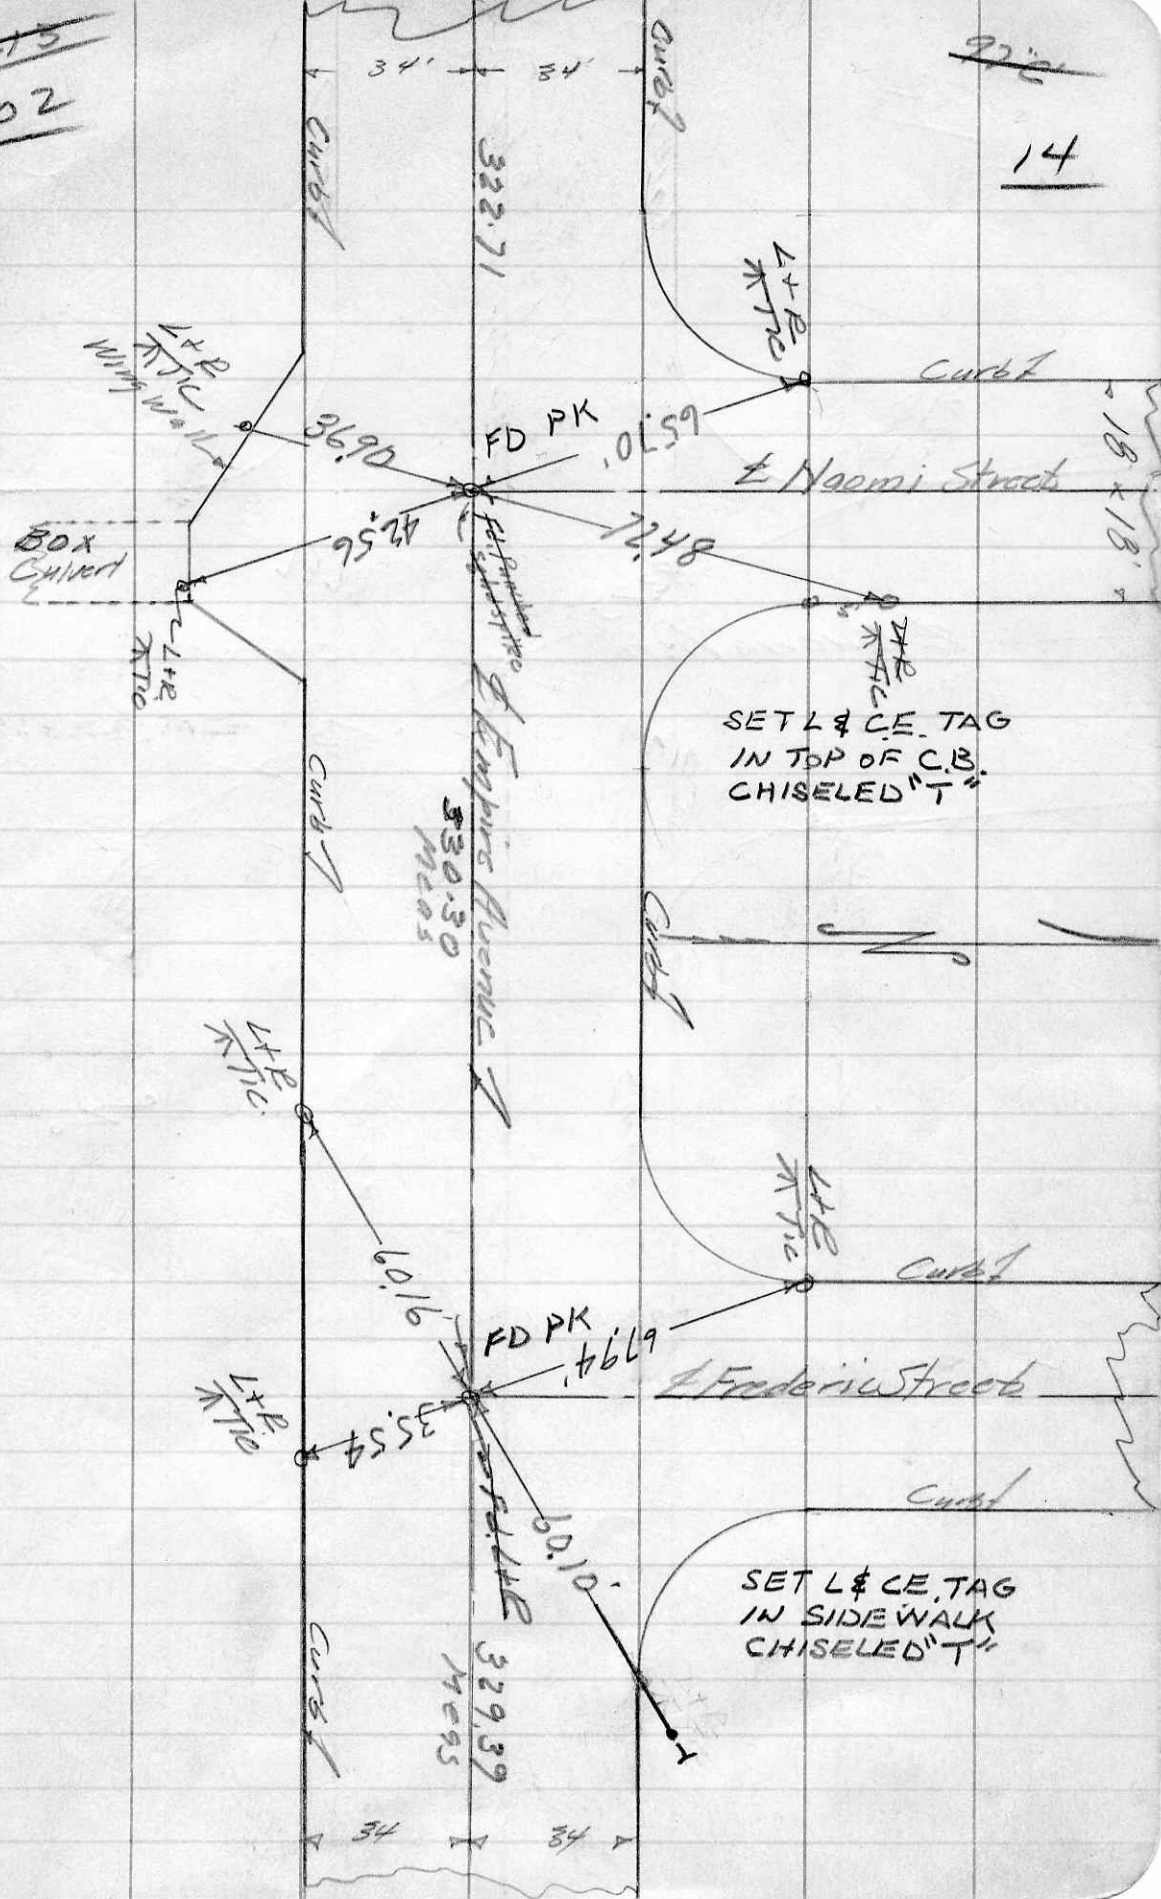 02
14
34'
34'
Curb
Curb
322.71
L+R
TIC
L+R
TIC
Wing Wall
Curb
18' x 18'
36.90
FD PK
65.70'
℄ Naomi Street
42.56
72.48
BOX
Culvert
L+R
TIC
L+R
TIC
SET L & C.E. TAG
IN TOP OF C.B.
CHISELED "T"
℄ Empire Avenue
330.30
Meas
Curb
Curb
L+R
TIC.
L+R
TIC
Curb
60.16
FD PK
67.94'
℄ Frederic Street
L+R
TIC
35.54
Fd. L+R
60.10'
Curb
SET L & C.E. TAG
IN SIDEWALK
CHISELED "T"
Curb
329.39
Meas
34
34